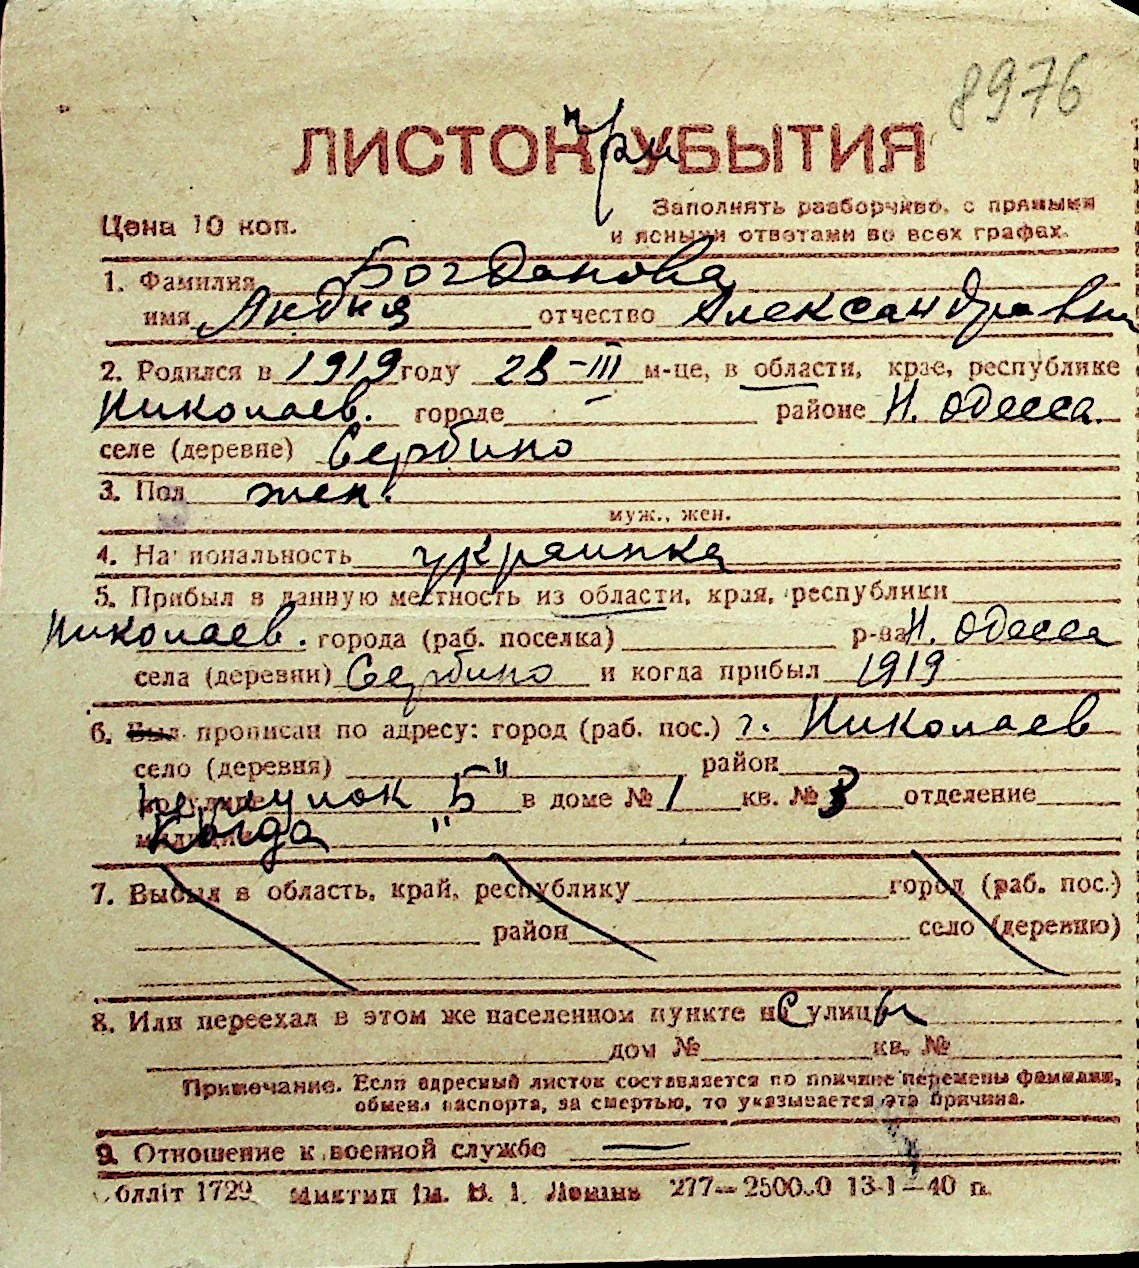 8976
ЛИСТОК при УБЫТИЯ
Цена 10 коп.
Заполнять разборчиво, с прямыми
и ясными ответами во всех графах.
1. Фамилия Богданова
имя Лидия отчество Александравна
2. Родился в 1919 году 28-III м-це, в области, крае, республике
Николаев. городе — районе Н. Одесса.
селе (деревне) Сербино
3. Пол жен.
муж., жен.
4. Национальность украинка
5. Прибыл в данную местность из области, края, республики
Николаев. города (раб. поселка) р-на Н. Одесса
села (деревни) Сербино и когда прибыл 1919
6. Был прописан по адресу: город (раб. пос.) г. Николаев
село (деревня) район
переулок "Б" в доме № 1 кв. № 3 отделение
Когда
7. Выбыл в область, край, республику город (раб. пос.)
район село (деревню)
8. Или переехал в этом же населенном пункте с улицы
дом № кв. №
Примечание. Если адресный листок составляется по причине перемены фамилии,
обмена паспорта, за смертью, то указывается эта причина.
9. Отношение к военной службе —
Облліт 1729 Миктип ім. В. І. Леніна 277—25000 13-1—40 п.